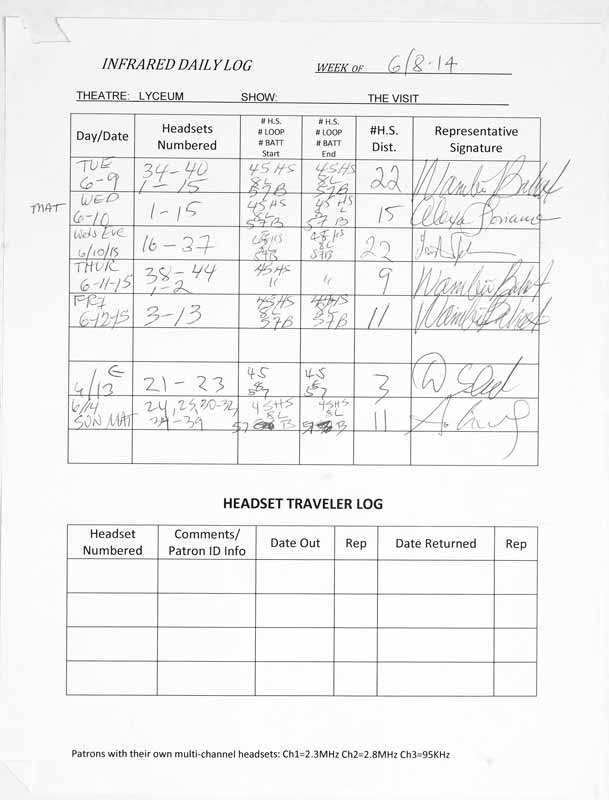 INFRARED DAILY LOG WEEK OF 6/8-14
THEATRE: LYCEUM SHOW: THE VISIT
Day/Date Headsets Numbered # H.S. # LOOP # BATT Start # H.S. # LOOP # BATT End #H.S. Dist. Representative Signature
TUE 6-9 34-40 1-15 45HS 8L 57B 45HS 8L 57B 22
MAT WED 6-10 1-15 45HS 8L 57B 45HS 8L 57B 15
Weds Eve 6/10/15 16-37 45HS 8L 57B 45HS 8L 57B 22
THUR 6-11-15 38-44 1-2 45HS " " 9
FRI 6-12-15 3-13 45HS 8L 57B 45HS 8L 57B 11
6/13 E 21-23 45 8 57 45 8 57 3
6/14 SUN MAT 24, 25, 30-32, 34-39 45HS 8L 57 B 45HS 8L 57 B 11
HEADSET TRAVELER LOG
Headset Numbered Comments/ Patron ID Info Date Out Rep Date Returned Rep
Patrons with their own multi-channel headsets: Ch1=2.3MHz Ch2=2.8MHz Ch3=95KHz